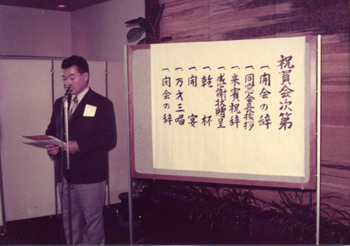 祝賀会次第
一開会の辞
一同窓会長挨拶
一来賓祝辞
一感謝状贈呈
一乾杯
一開宴
一万才三唱
一閉会の辞